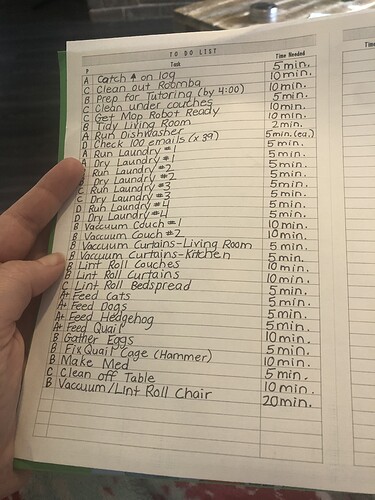 TO DO LIST
P Task Time Needed
Time
A Catch ↑ on log 5 min.
C Clean out Roomba 10 min.
B Prep for Tutoring (by 4:00) 10 min.
C Clean under couches 5 min.
C Get Mop Robot Ready 10 min.
B Tidy Living Room 10 min.
A Run Dishwasher 2 min.
D Check 100 emails (x 39) 5 min. (ea.)
A Run Laundry #1 5 min.
A Dry Laundry #1 5 min.
Run Laundry #2 5 min.
B Dry Laundry #2 5 min.
C Run Laundry #3 5 min.
C Dry Laundry #3 5 min.
D Run Laundry #4 5 min.
D Dry Laundry #4 5 min.
B Vaccuum Couch #1 10 min.
B Vaccuum Couch #2 10 min.
B Vaccuum Curtains-Living Room 5 min.
B Vaccuum Curtains-Kitchen 5 min.
B Lint Roll Couches 10 min.
B Lint Roll Curtains 10 min.
C Lint Roll Bedspread 5 min.
A+ Feed Cats 5 min.
A+ Feed Dogs 5 min.
A+ Feed Hedgehog 5 min.
A+ Feed Quail 5 min.
B Gather Eggs 10 min.
B Fix Quail Cage (Hammer) 5 min.
B Make Med 5 min.
C Clean off Table 10 min.
B Vaccuum/Lint Roll Chair 20 min.